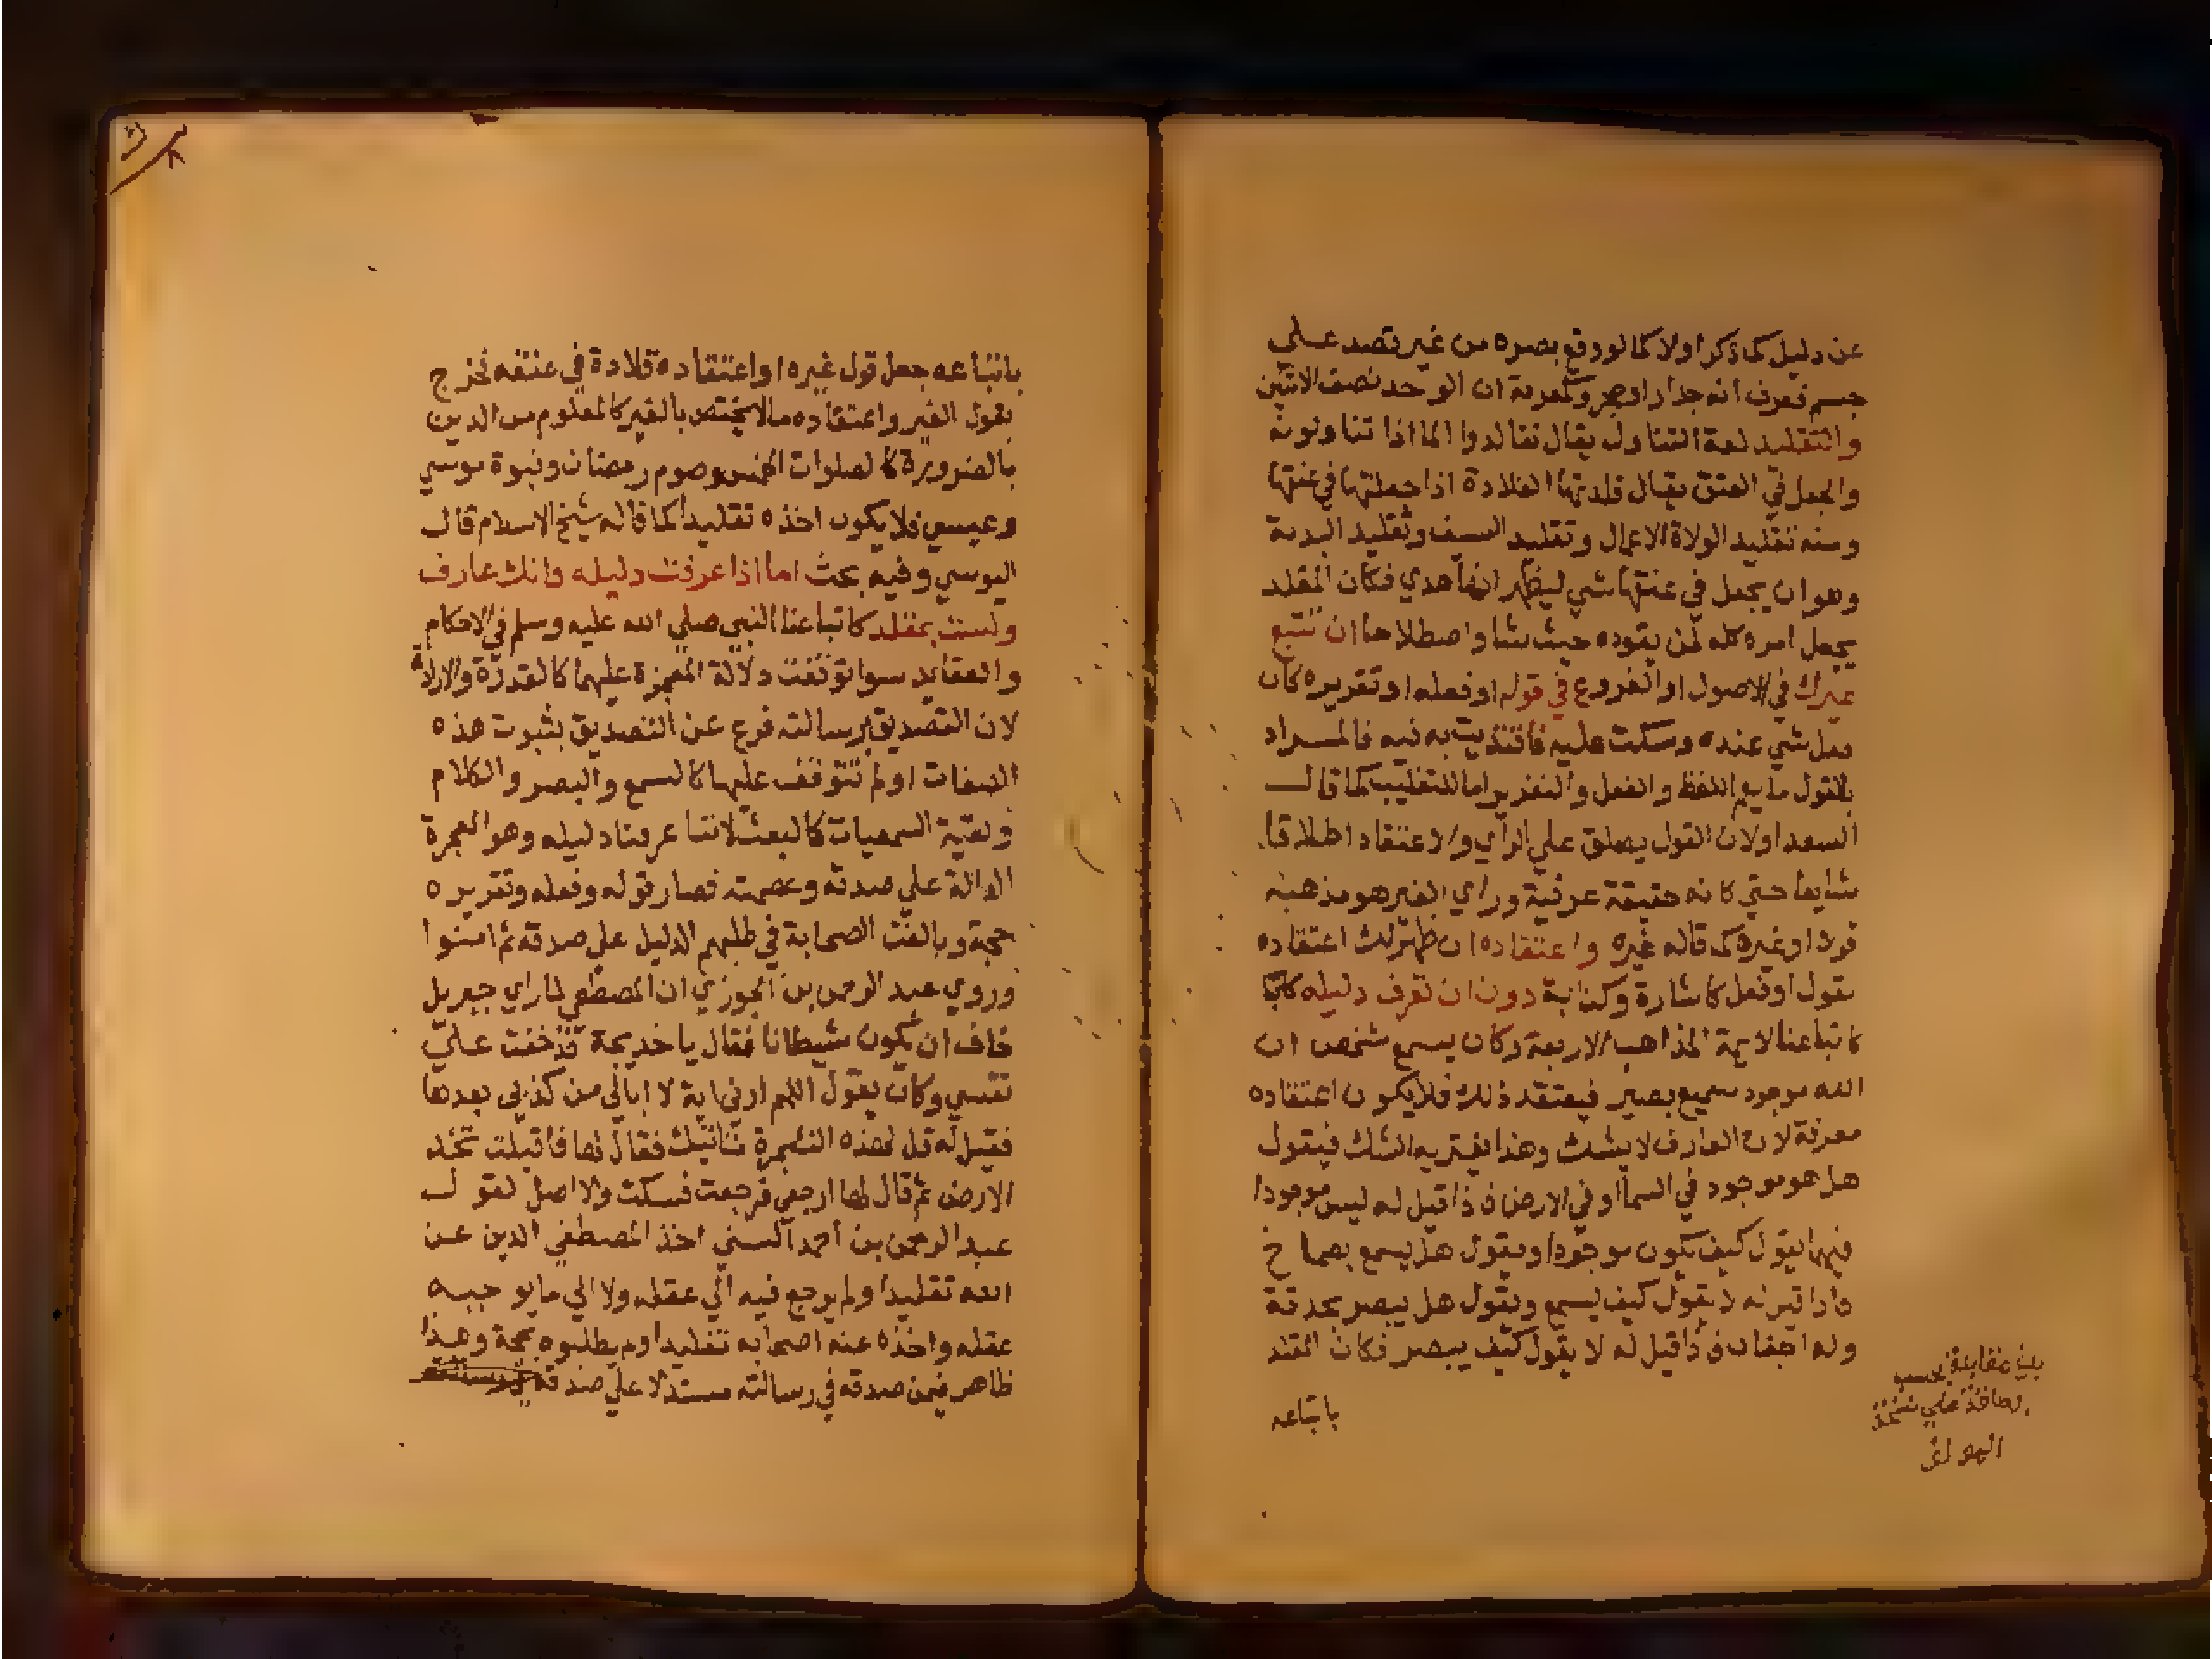 عن دليل كما ذكر اولا كما لو وقع بصره من غير قصد علي
جسم فعرف انه جدار او حجر وكمعرفة ان الوحد نصف الاثنين
والتقليد لغة التناول يقال تقالدوا الما اذا تناوبوه
والجعل في العنق يقال قلدتها القلادة اذا جعلتها في عنقها
ومنه تقليد الولاة الاعمال وتقليد السيف وتقليد البدنة
وهو ان يجعل في عنقها شي ليظهر انها هدي فكان المقلد
يجعل امره كله لمن يقوده حيث شا واصطلاحا ان تتبع
غيرك في الاصول او الفروع في قوله او فعله او تقريره كان
فعل شي عنده وسكت عليه فاقتديت به فيه فالمراد
بالقول ما يعم اللفظ والفعل والتقرير اما للتغليب كما قال
السعد او لان القول يطلق علي الراي والاعتقاد اطلاقا
شايعا حتي كانه حقيقة عرفية وراي الغير هو مذهبه
قولا او غيره كما قاله غيره واعتقاده ان ظهر لك اعتقاده
بقول او فعل كاشارة وكتابة دون ان تعرف دليله
كاتباعنا لايمة المذاهب الاربعة وكان يسمع شخص ان
الله موجود سميع بصير فيعتقد ذلك فلا يكون اعتقاده
معرفة لان العارف لا يشك وهذا يعتريه الشك فيقول
هل هو موجود في السما او في الارض فاذا قيل له ليس موجودا
فيهما يقول كيف يكون موجودا ويقول هل يسمع بصماخ
فاذا قيل له لا يقول كيف يسمع ويقول هل يبصر بحدقة
وله اجفان فاذا قيل له لا يقول كيف يبصر فكان المقلد
باتباعه
بلغ مقابلة بحسب
الطاقة علي نسخة
المولف
باتباعه جعل قول غيره او اعتقاده قلادة في عنقه فخرج
بقول الغير واعتقاده ما لا يختص بالغير كالمعلوم من الدين
بالضرورة كالصلوات الخمس وصوم رمضان ونبوة موسي
وعيسي فلا يكون اخذه تقليدا كما قاله شيخ الاسلام قال
اليوسي وفيه بحث اما اذا عرفت دليله فانك عارف
ولست بمقلد كاتباعنا النبي صلي الله عليه وسلم في الاحكام
والعقايد سوا توقفت دلالة المعجزة عليها كالقدرة والارادة
لان التصديق برسالته فرع عن التصديق بثبوت هذه
الصفات او لم تتوقف عليها كالسمع والبصر والكلام
وبقية السمعيات كالبعث لاننا عرفنا دليله وهو المعجزة
الدالة علي صدقه وعصمته فصار قوله وفعله وتقريره
حجة وبالغت الصحابة في طلبهم الدليل علي صدقه ثم امنوا
وروي عبد الرحمن بن الجوزي ان المصطفي لما راي جبريل
خاف ان يكون شيطانا فقال يا خديجة قد خفت علي
نفسي وكان يقول اللهم ارني اية لا ابالي من كذبني بعدها
فقيل له قل لهذه الشجرة تاتيك فقال لها فاقبلت تخد
الارض ثم قال لها ارجعي فرجعت فسكت ولا اصل لقول
عبد الرحمن بن احمد السني اخذ المصطفي الدين عن
الله تقليدا ولم يرجع فيه الي عقله ولا الي ما يوجبه
عقله واخذه عنه اصحابه تقليدا ولم يطلبوه بحجة وهذا
ظاهر فيمن صدقه في رسالته مستدلا علي صدقه